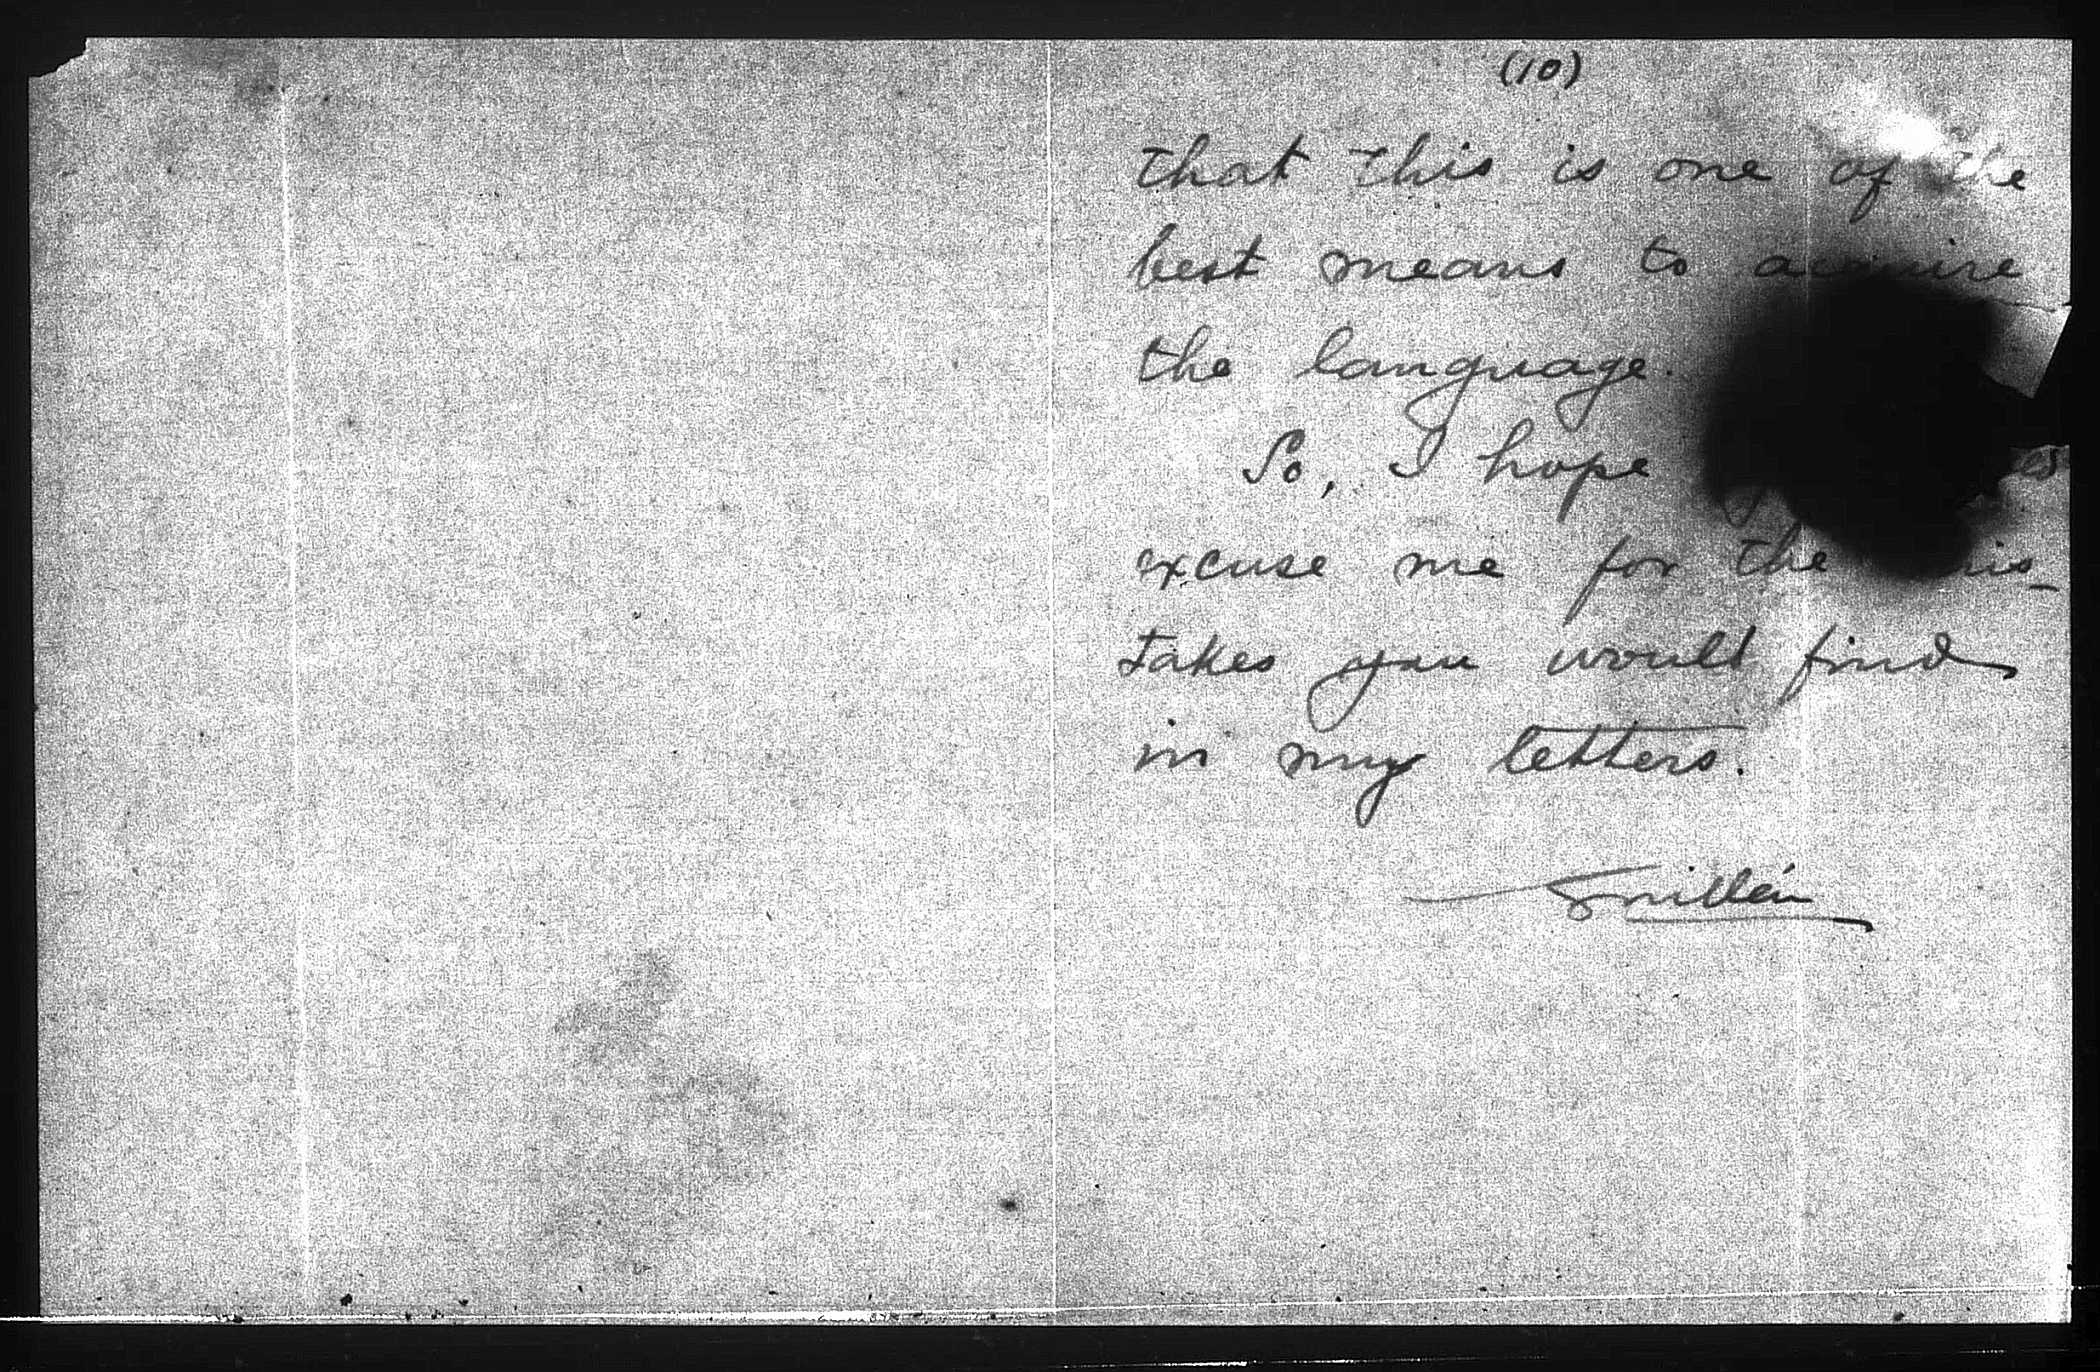 (10)
that this is one of the
best means to acquire
the language.
So, I hope
excuse me for the mis-
takes you would find
in my letters.
Guillén